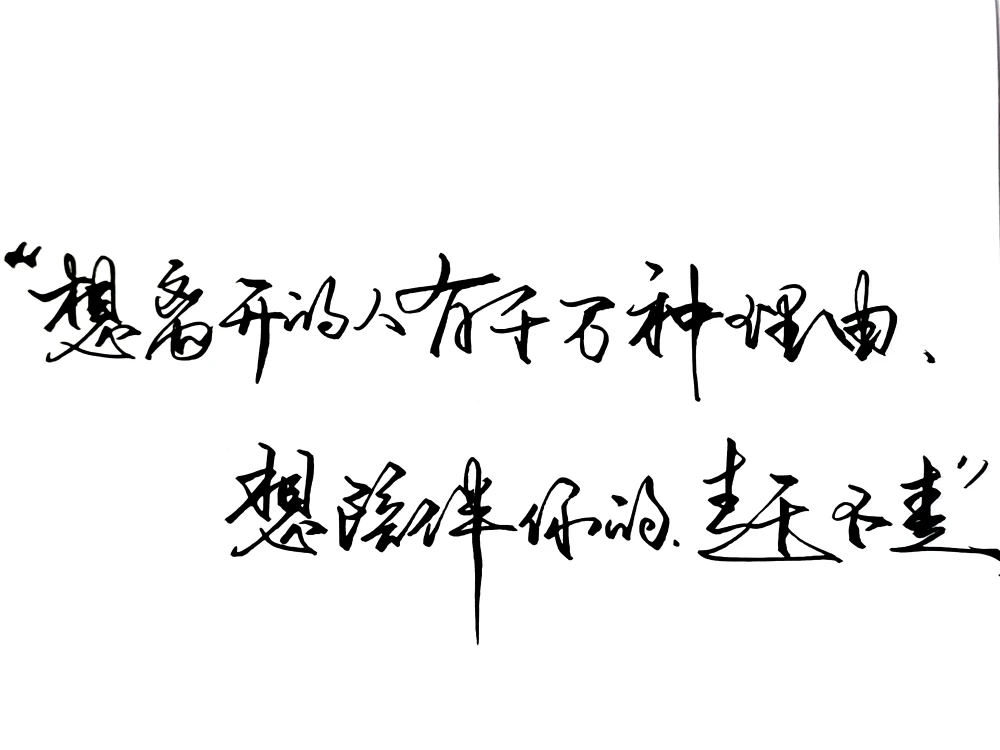 “想离开的人有千万种理由、
想陪伴你的.赶不走”